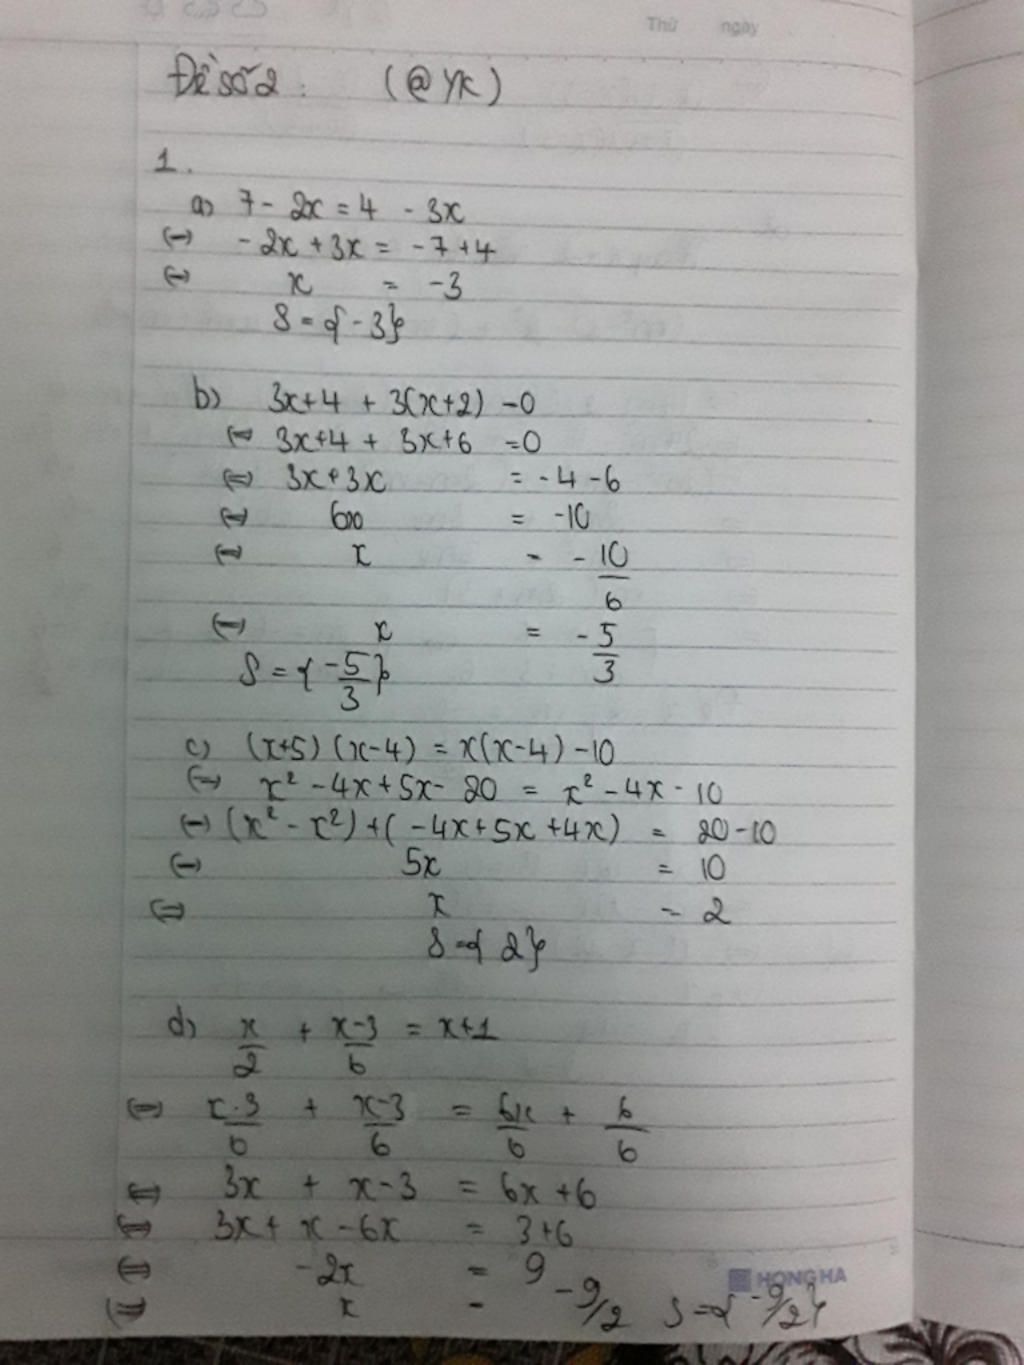 Thứ ngày
Đề số 2 : (@YK)
1.
a) 7 - 2x = 4 - 3x
(=) - 2x + 3x = - 7 + 4
(=) x = -3
S = { - 3}
b) 3x+4 + 3(x+2) = 0
(=) 3x+4 + 3x+6 = 0
(=) 3x+3x = - 4 - 6
(=) 6x = -10
(=) x = - 10/6
(=) x = - 5/3
S = { -5/3 }
c) (x+5) (x-4) = x(x-4) - 10
(=) x² - 4x + 5x - 20 = x² - 4x - 10
(=) (x² - x²) + ( - 4x + 5x + 4x) = 20 - 10
(=) 5x = 10
(=) x = 2
S = { 2}
d) x/2 + x-3/6 = x+1
(=) x.3/6 + x-3/6 = 6x/6 + 6/6
(=) 3x + x-3 = 6x + 6
(=) 3x + x - 6x = 3+6
(=) -2x = 9
(=) x = -9/2 S = { -9/2}
HONG HA